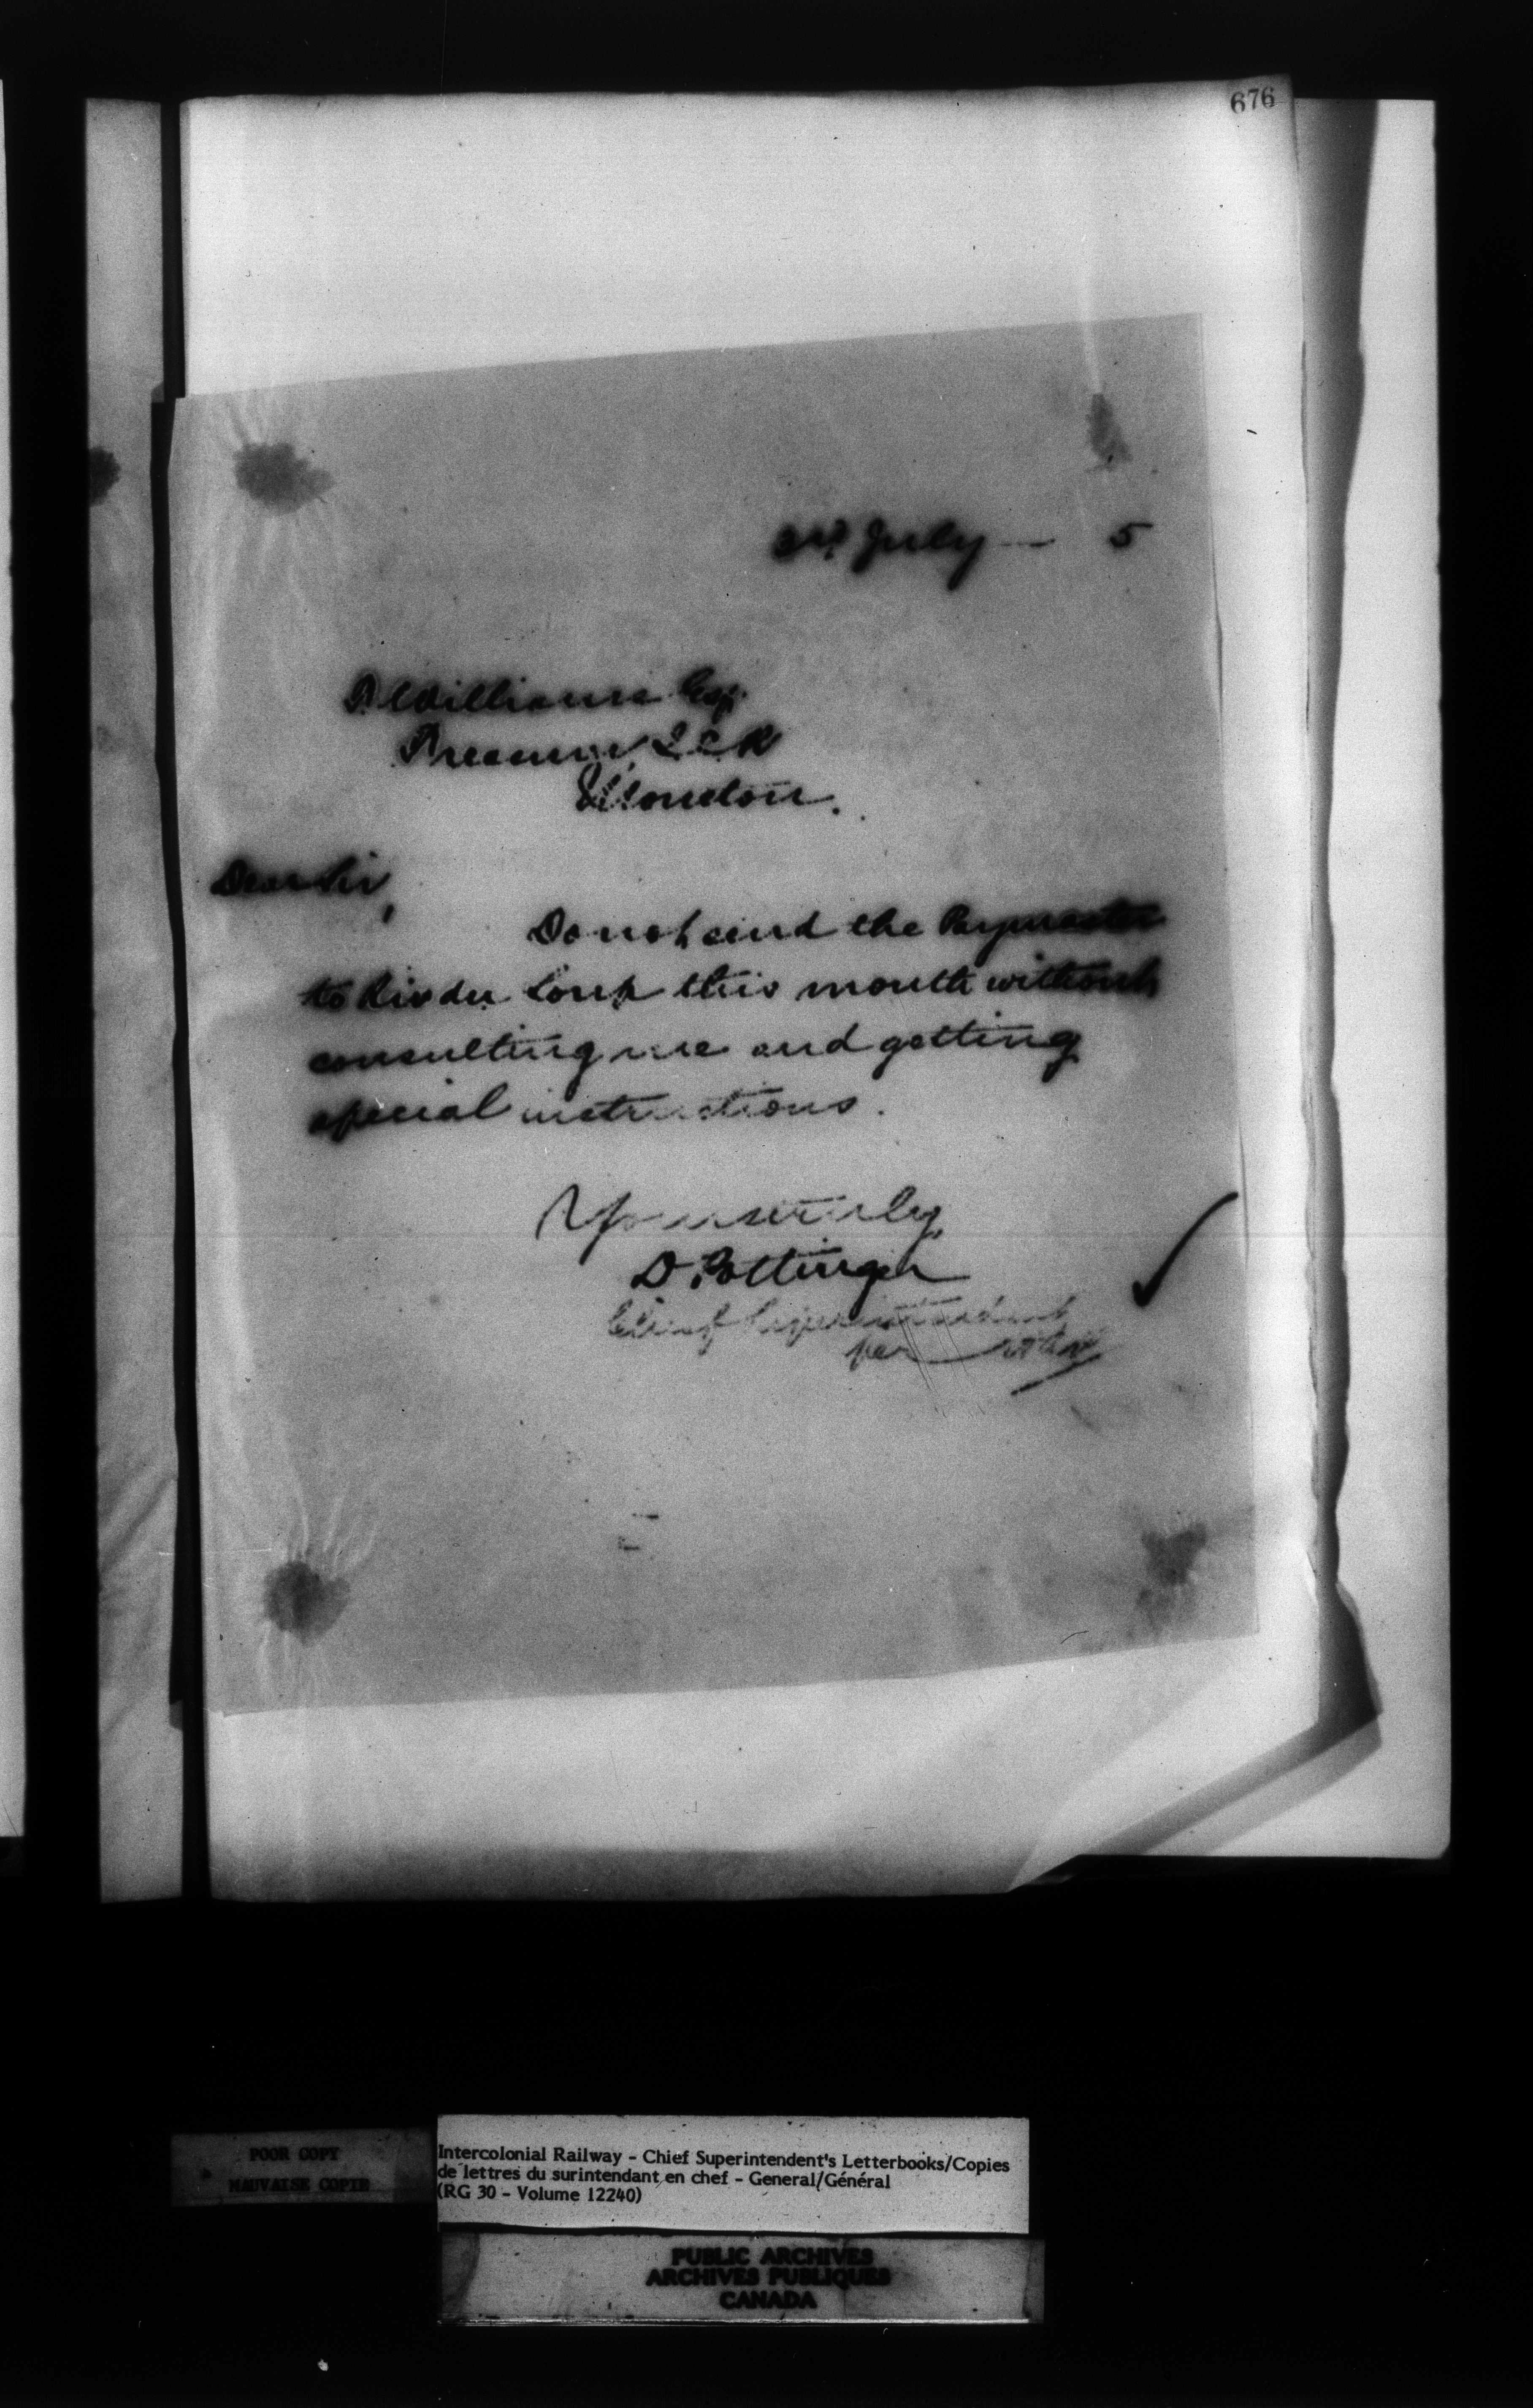 676
July — 5
Williams Esq.
Treasurer, I.C.R
Moncton.
Dear Sir,
Do not send the Paymaster
to Riv du Loup this month without
consulting me and getting
special instructions.
Yours truly,
D. Pottinger
Chief Superintendent
per
POOR COPY
MAUVAISE COPIE
Intercolonial Railway - Chief Superintendent's Letterbooks/Copies
de lettres du surintendant en chef - General/Général
(RG 30 - Volume 12240)
PUBLIC ARCHIVES
ARCHIVES PUBLIQUES
CANADA